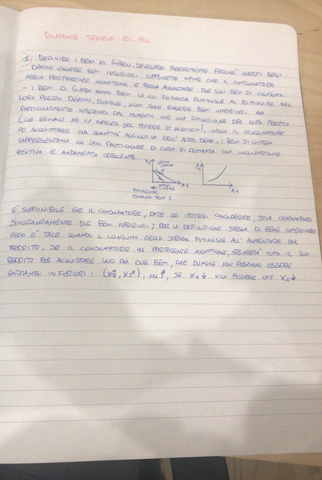 DOMANDE TEORIA EC. POL.
1) DEFINIRE I BENI DI GIFFEN, SPIEGARE BREVEMENTE PERCHÉ QUESTI BENI
DEVONO ESSERE BENI INFERIORI. SUPPONETE INFINE CHE IL CONSUMATORE
ABBIA PREFERENZE MONOTONE E POSSA ACQUISTARE DUE SOLI BENI DI CONSUMO.
- I BENI DI GIFFEN SONO BENI LA CUI DOMANDA DIMINUISCE AL DIMINUIRE DEL
LORO PREZZO. DEVONO, DUNQUE, NON SOLO ESSERE BENI INFERIORI, MA
PARTICOLARMENTE INFERIORI, DAL MOMENTO CHE UNA DIMINUZIONE DEL LORO PREZZO
AD ACQUISTARE UNA QUANTITÀ AGGIUNTIVA DELL'ALTRO BENE. I BENI DI GIFFEN
RAPPRESENTANO UN CASO PARTICOLARE DI CURVA DI DOMANDA CON INCLINAZIONE
POSITIVA E ANDAMENTO CRESCENTE.
È SUPPONIBILE CHE IL CONSUMATORE, DATE LE IPOTESI CONSIDERATE, STIA CONSUMANDO
SIMULTANEAMENTE DUE BENI INFERIORI? PER LA DEFINIZIONE STESSA DI BENE INFERIORE
ESSO È TALE QUANDO IL CONSUMO DELLO STESSO DIMINUISCE ALL'AUMENTARE DEL
REDDITO. SE IL CONSUMATORE HA PREFERENZE MONOTONE, SPENDERÀ TUTTO IL SUO
REDDITO PER ACQUISTARE UNO DEI DUE BENI, CHE DUNQUE NON POSSONO ESSERE
ENTRAMBI INFERIORI: